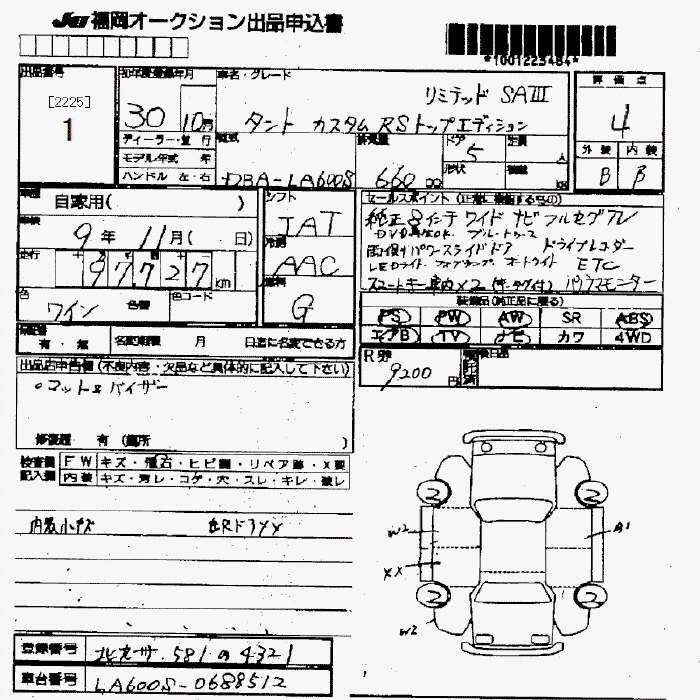 JU 福岡オークション出品申込書
*1001223484*
出品番号 初年度登録年月 車名・グレード 評価点
[2225]
1
30 10月 リミテッド SAⅢ
タント カスタム RSトップエディション
4
ディーラー・並行 型式 排気量 ドア 定員 外装 内装
モデル年式 年 5 人 形状 積載
ハンドル 左・右 DBA-LA600S 660 cc B B
自家用( ) シフト セールスポイント
9年 11月( 日) IAT
純正8インチ ワイド ナビ フルセグTV
DVD再生OK ブルートゥース
冷房 両側パワースライドドア ドライブレコーダー
走行 97727 km AAC
LEDライト フォグランプ オートライト ETC
スマートキー車内×2 パノラマモニター
色 ワイン 色替 色コード 燃料 G
装備品(純正品に限る)
PS PW AW SR ABS
エアB TV ナビ カワ 4WD
有・無 名変期限 月 日迄に名変できる方
R券 9200 円
出品店申告欄(不良内容・欠品など具体的に記入して下さい)
○マット&バイザー
修復歴 有 (箇所 )
検査員 FW キズ・飛石・ヒビ割・リペア跡・X要
記入欄 内装 キズ・汚レ・コゲ・穴・スレ・キレ・破レ
内装小キズ 右RドアXX
2 2
W2 A1
XX
2 2
W2
登録番号 北九州 581 の 4321
車台番号 LA600S-0688512